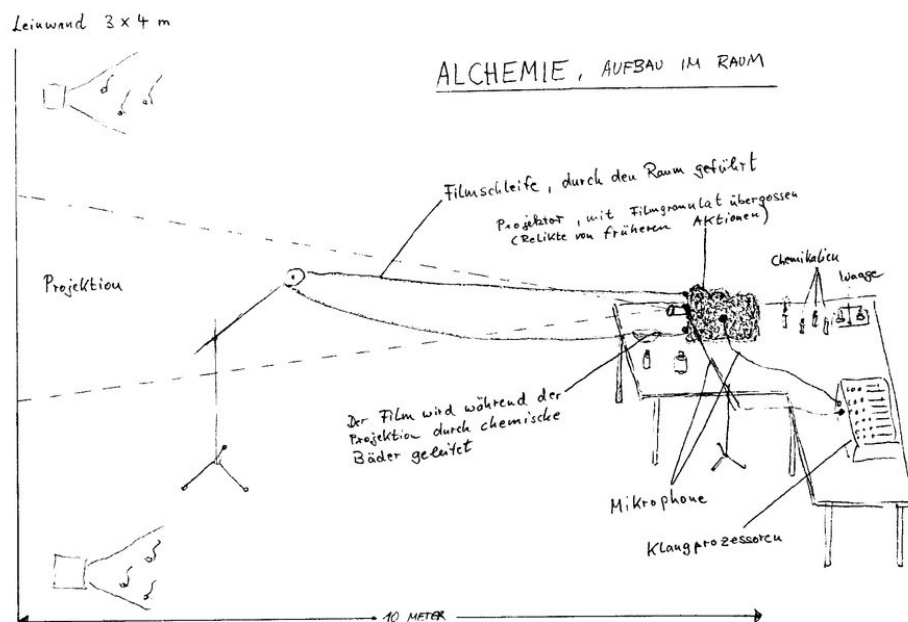 Leinwand 3 x 4 m
ALCHEMIE, AUFBAU IM RAUM
Filmschleife, durch den Raum geführt
Projektor, mit Filmgranulat übergossen
(Relikte von früheren Aktionen)
Chemikalien
Waage
Projektion
Der Film wird während der
Projektion durch chemische
Bäder geleitet
Mikrophone
Klangprozessoren
10 METER